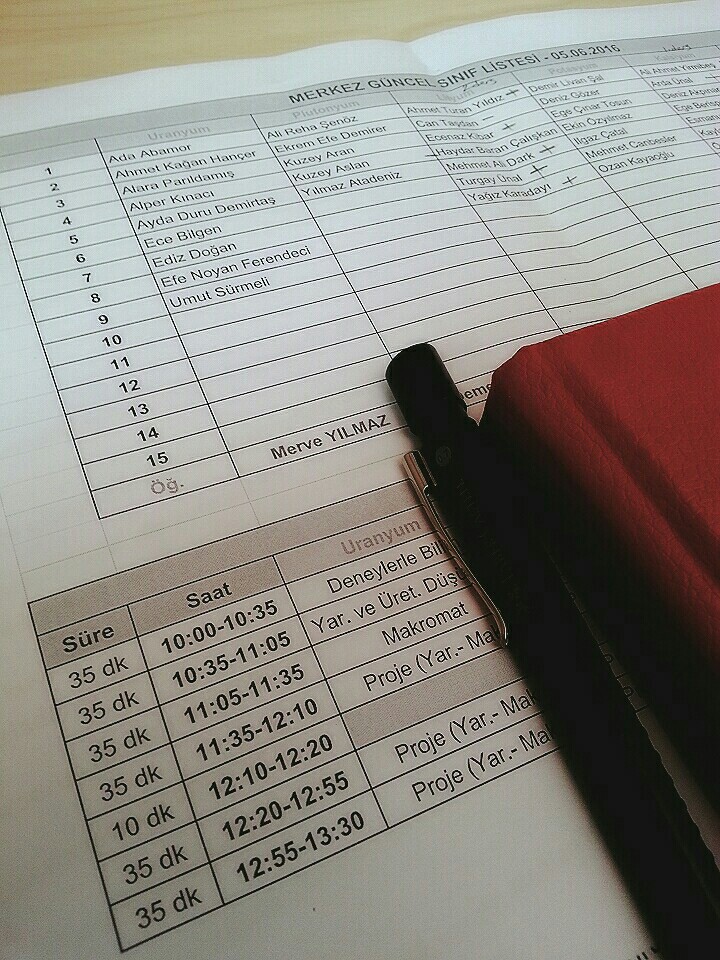 MERKEZ GÜNCEL SINIF LİSTESİ - 05.06.2016
Uranyum Plutonyum Polonyum
1 Ada Abamor Ali Reha Şenöz Ahmet Turan Yıldız + Demir Livan Şal Ali Ahmet Yirmibeş
2 Ahmet Kağan Hançer Ekrem Efe Demirer Can Taşdan - Deniz Gözer Arda Ünal
3 Alara Parıldamış Kuzey Aran Ecenaz Kibar + Ege Çınar Tosun Deniz Akpınar
4 Alper Kınacı Kuzey Aslan Haydar Baran Çalışkan Ekin Özyılmaz Ege
5 Ayda Duru Demirtaş Yılmaz Atadeniz Mehmet Ali Dark + Ilgaz Çatal
6 Ece Bilgen Turgay Ünal + Mehmet Canbesler
7 Ediz Doğan Yağız Karadayı + Ozan Kayaoğlu
8 Efe Noyan Ferendeci
9 Umut Sürmeli
10
11
12
13
14
15
Öğ. Merve YILMAZ
Uranyum
Süre Saat Deneylerle Bil
35 dk 10:00-10:35 Yar. ve Üret. Düşü
35 dk 10:35-11:05 Makromat
35 dk 11:05-11:35 Proje (Yar.- Mak
35 dk 11:35-12:10
10 dk 12:10-12:20 Proje (Yar.- Mak
35 dk 12:20-12:55 Proje (Yar.- Mak
35 dk 12:55-13:30